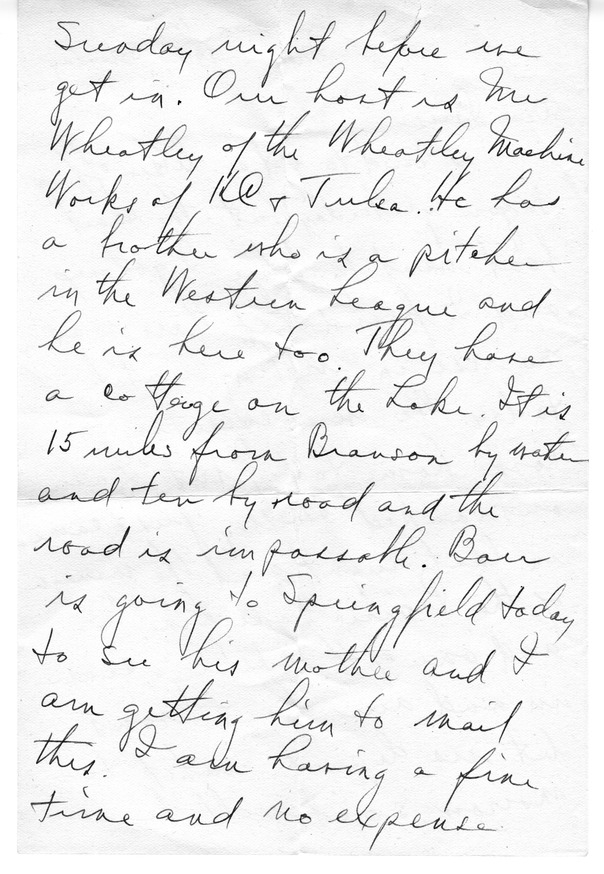 Sunday night before we
get in. Our host is Mr
Wheatley of the Wheatley Machine
Works of KC & Tulsa. He has
a brother who is a pitcher
in the Western League and
he is here too. They have
a cottage on the Lake. It is
15 miles from Branson by water
and ten by road and the
road is impassable.
is going to Springfield today
to see his mother and I
am getting him to mail
this. I am having a fine
time and no expense